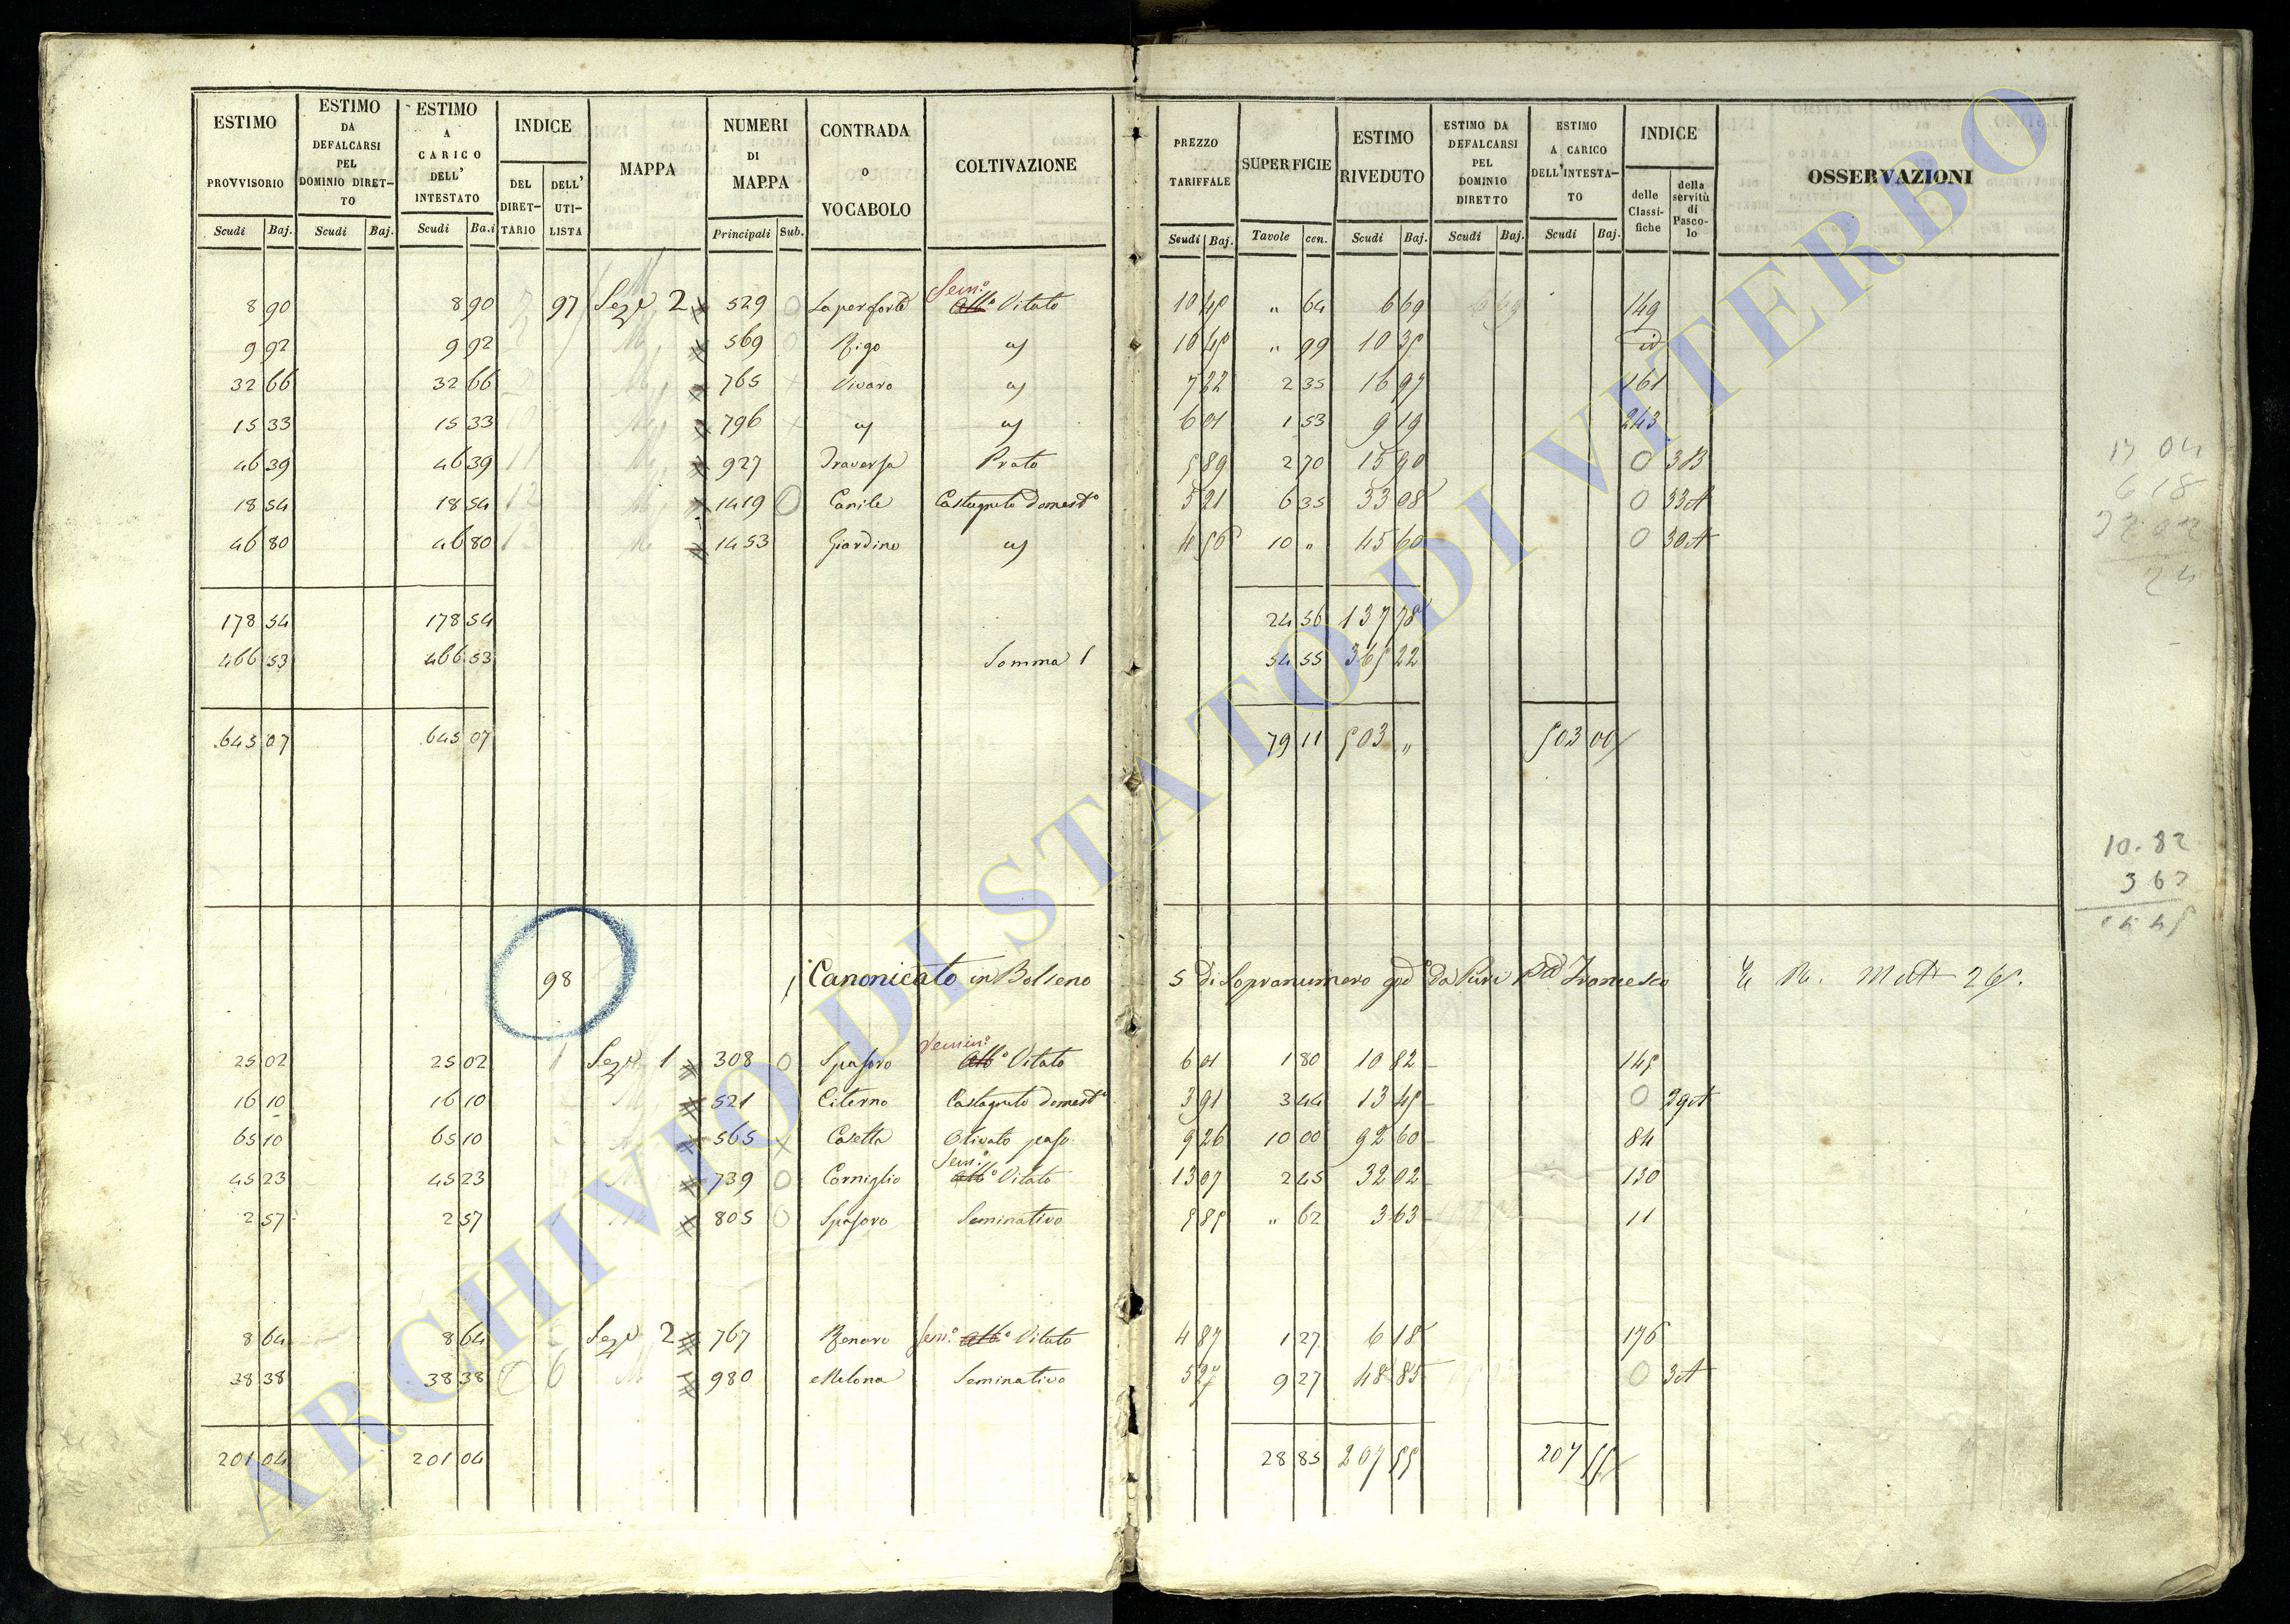 ESTIMO PROVVISORIO | ESTIMO DA DEFALCARSI PEL DOMINIO DIRETTO | ESTIMO A CARICO DELL' INTESTATO | INDICE | MAPPA | NUMERI DI MAPPA | CONTRADA O VOCABOLO | COLTIVAZIONE | PREZZO TARIFFALE | SUPERFICIE | ESTIMO RIVEDUTO | ESTIMO DA DEFALCARSI PEL DOMINIO DIRETTO | ESTIMO A CARICO DELL'INTESTATO | INDICE | OSSERVAZIONI
DEL DIRETTARIO | DELL' UTILISTA | delle Classifiche | della servitù di Pascolo
Scudi | Baj. | Scudi | Baj. | Scudi | Ba.i | Principali | Sub. | Scudi | Baj. | Tavole | cen. | Scudi | Baj. | Scudi | Baj. | Scudi | Baj.
8 90 | 8 90 | 97 | Seze 2 | 529 | 0 | Semo Vitato | 10 45 | " 64 | 6 69 | 149
9 92 | 9 92 | 569 | 0 | Rigo | " 99 | 10 35 | id
32 66 | 32 66 | 765 | Vivaro | 7 22 | 2 35 | 16 97 | 161
15 33 | 15 33 | 796 | 6 01 | 1 53 | 9 19 | 243
46 39 | 46 39 | 11 | 927 | Traversa | Prato | 5 89 | 2 70 | 15 90 | 0 | 3B
18 54 | 18 54 | 12 | 1419 | 0 | Canile | Castagneto domesto | 5 21 | 6 35 | 33 08 | 0 | 33A
46 80 | 46 80 | 1453 | Giardino | 4 56 | 10 " | 45 60 | 0 | 30A
178 54 | 178 54 | 24 56 | 137 78
466 53 | 466 53 | Somma 1 | 54 55 | 365 22
645 07 | 645 07 | 79 11 | 503 " | 503 00
10.82
3 63
98 | Canonicato in Bolseno 5 di Sopranumero Francesco
25 02 | 25 02 | 1 | Seze 1 | 308 | 0 | Spasoro | Semino Vitato | 6 01 | 1 80 | 10 82 | 145
16 10 | 16 10 | 521 | Citerno | Castagneto domesto | 3 91 | 3 44 | 13 45 | 0 | 29A
65 10 | 65 10 | 565 | Casetta | Olivato | 9 26 | 10 00 | 92 60 | 84
45 23 | 45 23 | 739 | 0 | Corniglio | Semo Vitato | 13 07 | 2 45 | 32 02 | 130
2 57 | 2 57 | 805 | 0 | Spasoro | Seminativo | 5 85 | " 62 | 3 63 | 11
8 64 | 8 64 | Seze 2 | 767 | Renaro | Semo Vitato | 4 87 | 1 27 | 6 18 | 176
38 38 | 38 38 | 6 | 980 | Melona | Seminativo | 5 27 | 9 27 | 48 85 | 0 | 3A
201 04 | 201 04 | 28 85 | 207 55 | 207 55
ARCHIVIO DI STATO DI VITERBO